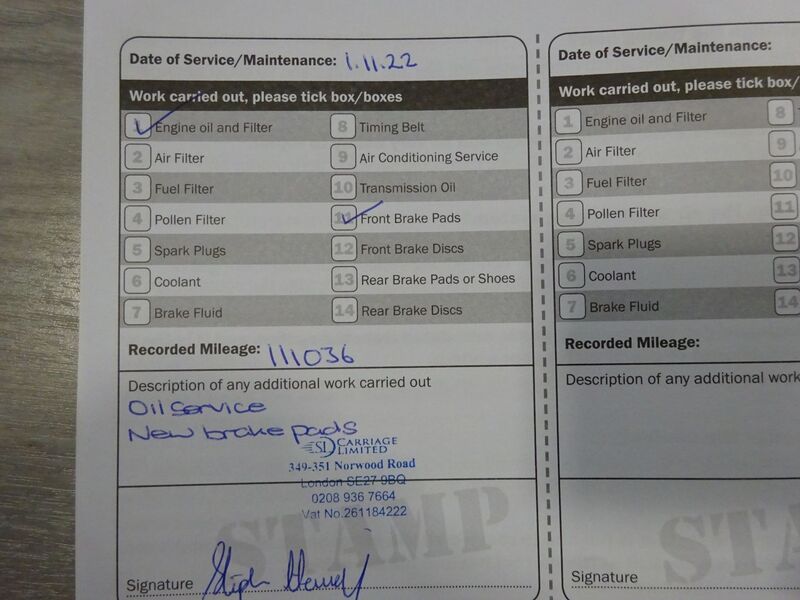 Date of Service/Maintenance: 1.11.22
Work carried out, please tick box/boxes
1 Engine oil and Filter
8 Timing Belt
2 Air Filter
9 Air Conditioning Service
3 Fuel Filter
10 Transmission Oil
4 Pollen Filter
11 Front Brake Pads
5 Spark Plugs
12 Front Brake Discs
6 Coolant
13 Rear Brake Pads or Shoes
7 Brake Fluid
14 Rear Brake Discs
Recorded Mileage: 111036
Description of any additional work carried out
Oil service
New brake pads
SD CARRIAGE
LIMITED
349-351 Norwood Road
London SE27 9BQ
0208 936 7664
Vat No.261184222
STAMP
Signature
Date of Service/Maintenance:
Work carried out, please tick box/b
1 Engine oil and Filter
8
2 Air Filter
9
3 Fuel Filter
10
4 Pollen Filter
11
5 Spark Plugs
12
6 Coolant
13
7 Brake Fluid
14
Recorded Mileage:
Description of any additional work
STA
Signature